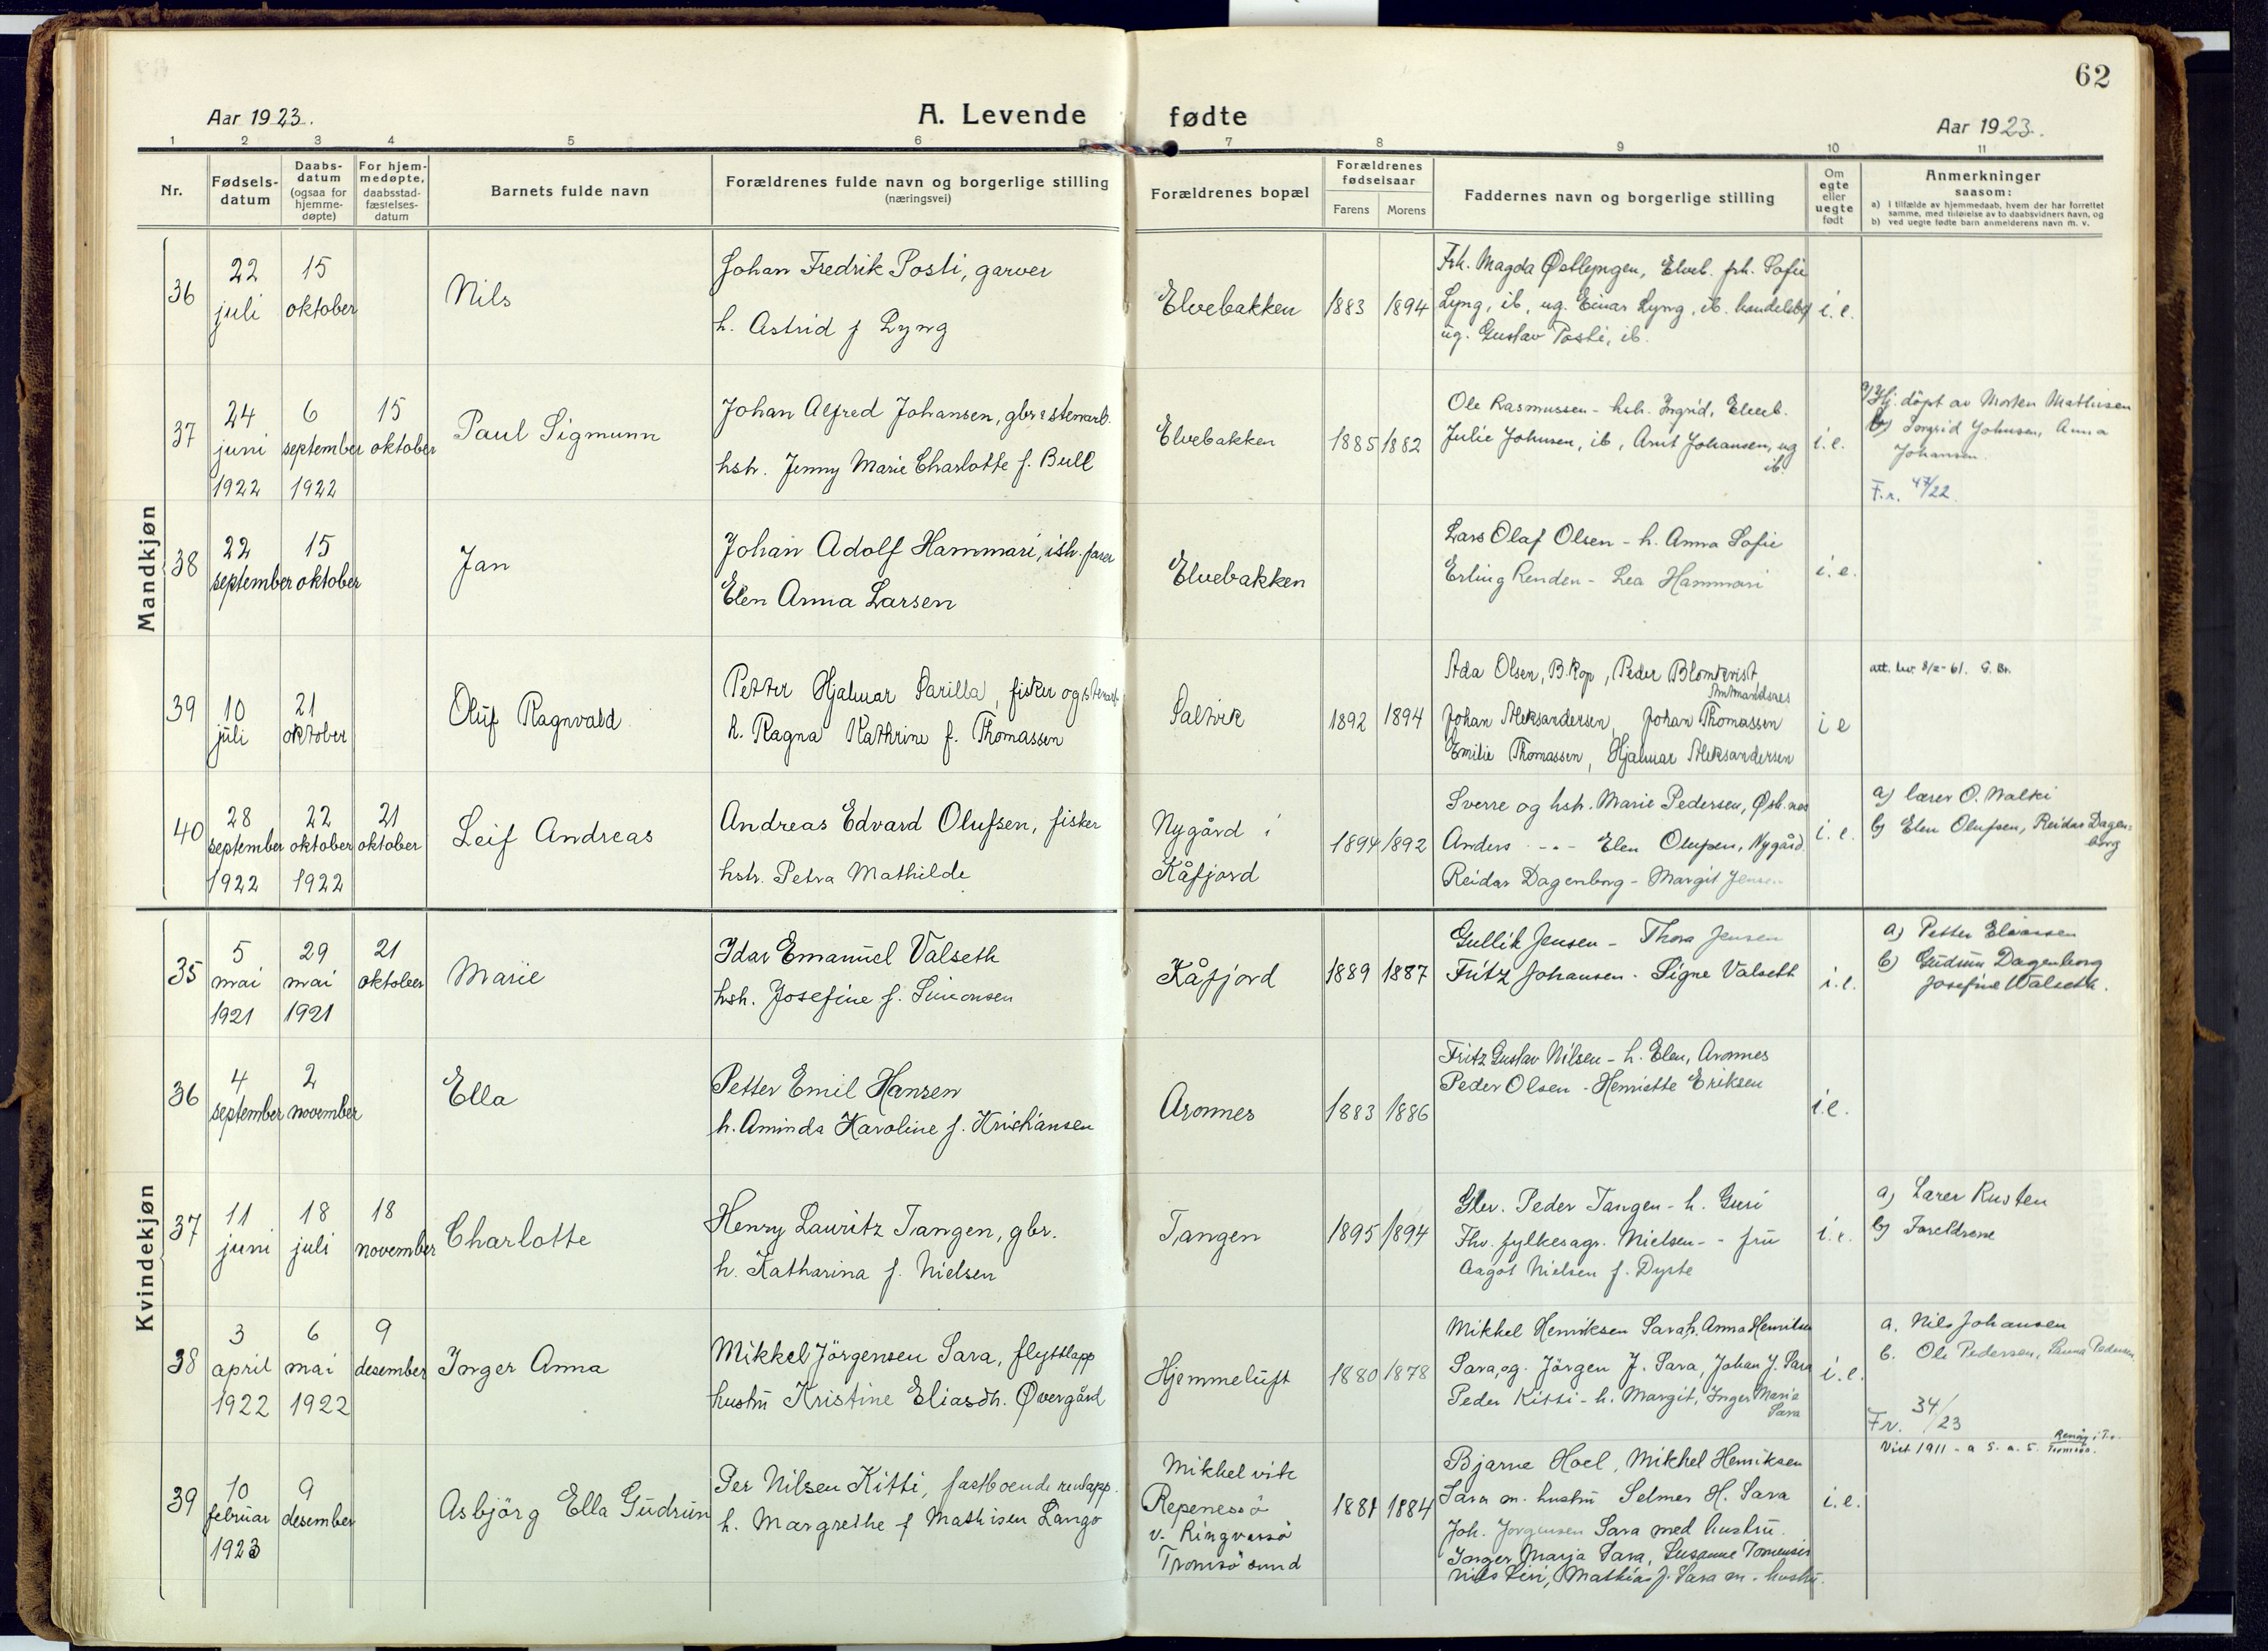 62
Aar 1923.
A. Levende fødte
Aar 1923.
1 2 3 4 5 6 7 8 9 10 11
Nr.
Fødsels-
datum
Daabs-
datum
(ogsaa for
hjemme-
døpte)
For hjem-
medøpte,
daabsstad-
fæstelses-
datum
Barnets fulde navn
Forældrenes fulde navn og borgerlige stilling
(næringsvei)
Forældrenes bopæl
Forældrenes
fødselsaar
Farens Morens
Faddernes navn og borgerlige stilling
Om
egte
eller
uegte
født
Anmerkninger
saasom:
a) i tilfælde av hjemmedaab, hvem der har forrettet
samme, med tilføielse av to daabsvidners navn, og
b) ved uegte fødte barn anmelderens navn m. v.
Mandkjøn
36
22
juli
15
oktober
Nils
Johan Fredrik Posti, garver
h. Astrid f Lyng
Elvebakken
1883 1894
Frk. Magda Østlyngen, Elveb. frk. Sofie
Lyng, ib, ug. Einar Lyng, ib.
ug. Gustav Posti, ib.
i. e.
37
24
juni
1922
6
september
1922
15
oktober
Paul Sigmunn
Johan Alfred Johansen, gbr. & stenarb.
hstr. Jenny Marie Charlotte f. Bull
Elvebakken
1885 1882
Ole Rasmussen - hstr. Ingrid, Elveb.
Julie Johnsen, ib, Arnt Johansen, ug
ib.
i. e.
a) Hj. döpt av Morten Mathisen
b) Ingrid Johnsen, Anna
Johansen.
F.r. 47/22.
38
22
september
15
oktober
Jan
Johan Adolf Hammari, ish.
Elen Anna Larsen
Elvebakken
Lars Olaf Olsen - h. Anna Sofie
Erling Renden - Lea Hammari
i. e.
39
10
juli
21
oktober
Oluf Ragnvald
Petter Hjalmar Sarilla, fisker og stenarb.
h. Ragna Kathrine f. Thomassen
Saltvik
1892 1894
Ada Olsen, B.kop, Peder Blomkvist,
Ammandsnes
Johan Aleksandersen, Johan Thomassen
Emilie Thomassen, Hjalmar Aleksandersen
i e
att. lev. 8/2-61. G. Br.
40
28
september
1922
22
oktober
1922
21
oktober
Leif Andreas
Andreas Edvard Olufsen, fisker
hstr. Petra Mathilde
Nygård i
Kåfjord
1894 1892
Sverre og hstr. Marie Pedersen, Østr.nes
Anders -"- Elen Olufsen, Nygård.
Reidar Dagenborg - Margit Jensen
i. e.
a) lærer O. Walki
b) Elen Olufsen, Reidar Dagen-
borg
Kvindekjøn
35
5
mai
1921
29
mai
1921
21
oktober
Marie
Idar Emanuel Valseth
hstr. Josefine f. Simonsen
Kåfjord
1889 1887
Gullik Jensen - Thora Jensen
Fritz Johansen - Signe Valseth
i. e.
a) Petter Eliassen
b) Gudrun Dagenborg
Josefine Walseth.
36
4
september
2
november
Ella
Petter Emil Hansen
h. Aminda Karoline f. Kristiansen
Aronnes
1883 1886
Fritz Gustav Nilsen - h. Elen, Aronnes
Peder Olsen - Henriette Eriksen
i.e.
37
11
juni
18
juli
18
november
Charlotte
Henry Lauritz Tangen, gbr.
h. Katharina f. Nielsen
Tangen
1895 1894
Peder Tangen - h. Guri
Fhv. fylkesagr. Nielsen - - fru
Aagot Nielsen f. Dyste
i. e.
a) Lærer Rusten
b) Foreldrene
38
3
april
1922
6
mai
1922
9
desember
Inger Anna
Mikkel Jörgensen Sara, flyttlapp
hustru Kristine Eliasdtr. Övergård
Hjemmeluft
1880 1878
Mikkel Henriksen Sara, h. Anna Henriksen
Sara, og. Jörgen J. Sara, Johan J. Sara
Peder Kitti - h. Margit, Inger Marie
Sara
i. e.
a. Nils Johansen
b. Ole Pedersen, Pedersen.
Fr. 34/23
39
10
februar
1923
9
desember
Asbjörg Ella Gudrun
Per Nilsen Kitti, fastboende rendlapp.
h. Margrethe f Mathisen Lango
Mikkelvik
Repenessö
v. Ringvassö
Tromsösund
1881 1884
Bjarne Hoel, Mikkel Henriksen
Sara m. hustru Selmer H. Sara
Joh. Jorgensen Sara med hustru.
Inger Marja Sara, Susanne Tomensis
Nils Siri, Mathias J. Sara m. hustru.
i. e.
Vict 1911 - a S. a. S. Tromsö.